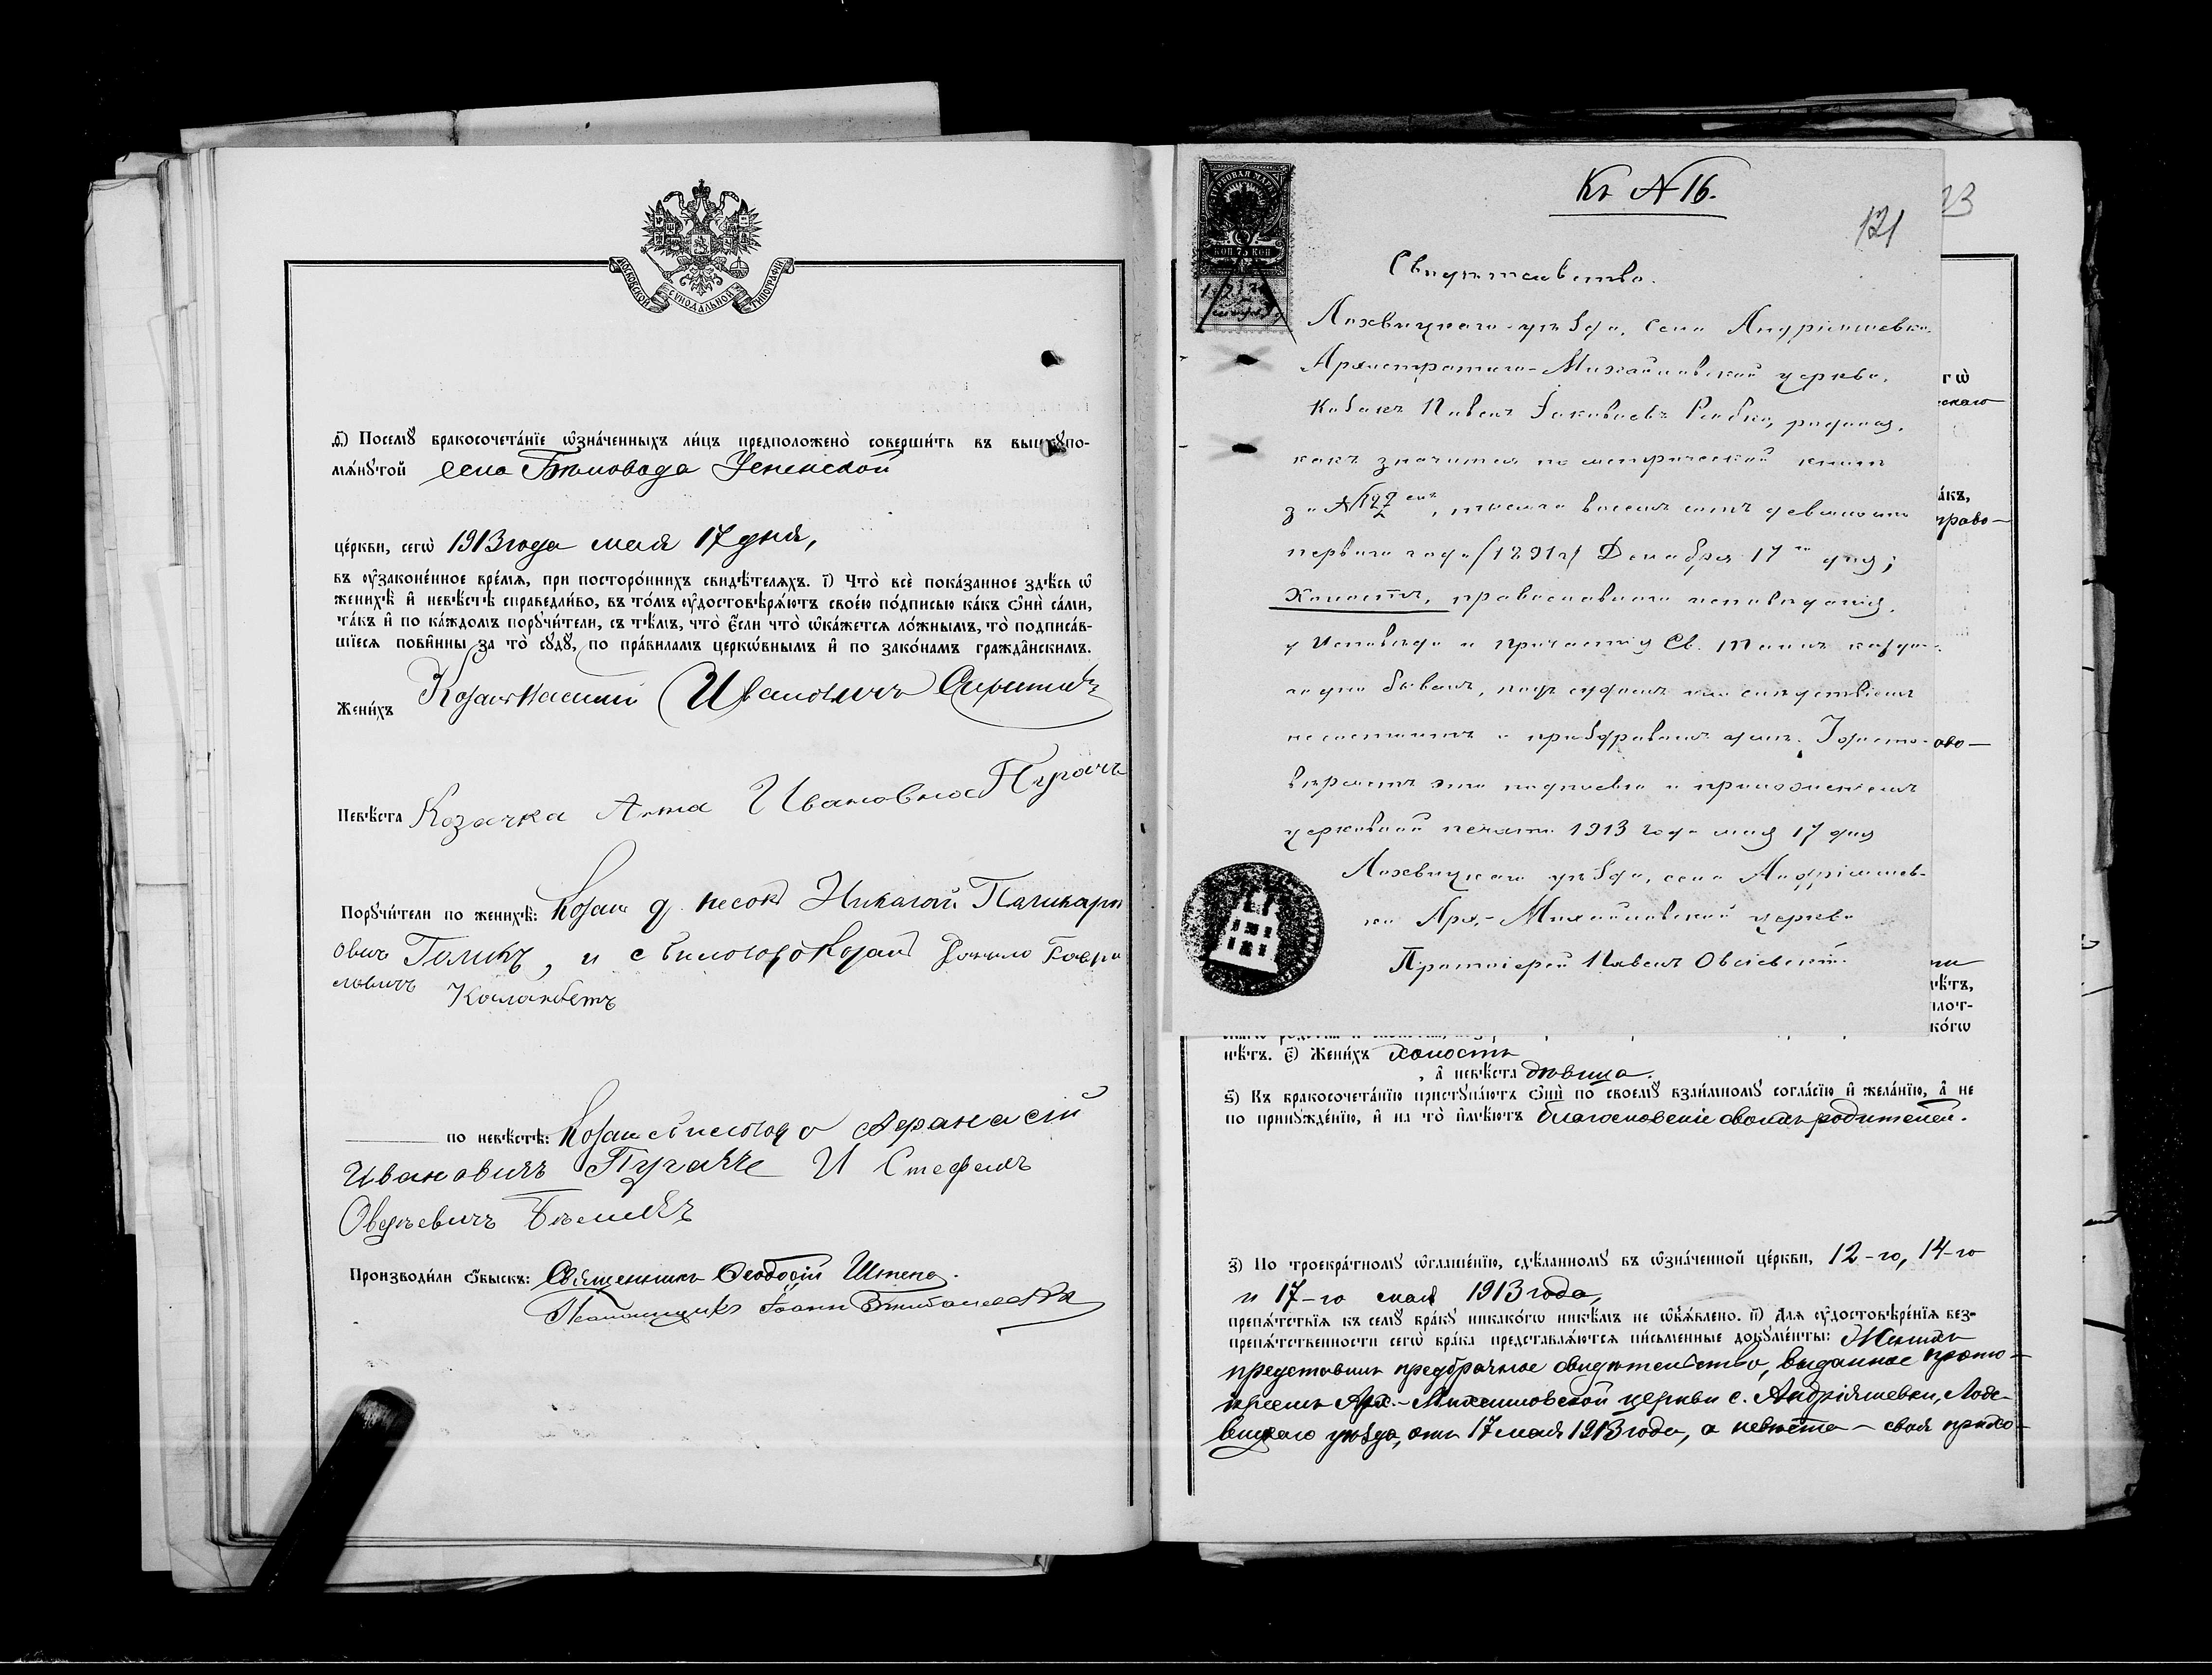 МОСКОВСКОЙ СѴНОДАЛЬНОЙ ТИПОГРАФІИ
д҃) Посемꙋ бракосочета́нїе ѡ҆зна́ченныхъ ли́цъ предположено̀ соверши́ть въ вышеꙋпо-
мѧ́нꙋтой села Бѣловода Успенской
це́ркви, сегѡ̀ 1913 года мая 17 дня,
въ ᲂу҆законе́нное вре́мѧ, при посторо́ннихъ свидѣ́телѧхъ. і҃) Что̀ всѐ пока́занное здѣ́сь ѡ҆
женихѣ̀ и҆ невѣ́стѣ справедли́во, въ то́мъ ᲂу҆достовѣрѧ́ютъ свое́ю по́дписью ка́къ ѻ҆нѝ са́ми,
та́къ и҆ по ка́ждомъ порꙋчи́тели, съ тѣ́мъ, что̀ є҆́сли что̀ ѡ҆ка́жетсѧ ло́жнымъ, то̀ подписа́в-
шїесѧ пови́нны за то̀ сꙋдꙋ̀, по пра́виламъ церко́внымъ и҆ по зако́намъ гражда́нскимъ.
Жени́хъ Ивановичъ
Невѣ́ста Козачка Анна Ивановна Пугачъ
Порꙋчи́тели по женихѣ̀: Козакъ д. песокъ Николай Паликарп
овичъ Голикъ, и с Биловода Козакъ Данило Гаври
ловичъ Каланбетъ
по невѣ́стѣ: Козакъ с Биловода Афанасій
Ивановичъ Пугаче И Стефанъ
Овдѣевичъ
Производи́ли ѻ҆́быскъ: Священникъ Ѳеодосій
Псаломщикъ Іоаннъ
Къ №16.
121
23
КОП 75 КОП
Свидѣтельство.
Лохвицкаго уѣзда, села Андріяшевки,
Архистратиго-Михайловской церкви,
Козакъ Павелъ Іаковлевъ Рябко, родился,
какъ значится по метрической книгѣ
за №127, тысяча восемь сотъ девяносто
перваго года (1891 г) Декабря 17 го дня;
Холостъ, православнаго исповѣданія,
у Исповѣди и Причастія Св. Таинъ каждо-
годно бывалъ, подъ судомъ или слѣдствіемъ
не состоитъ и придбрачныя дни. Удосто-
вѣряетъ это подписью и приложеніемъ
церковной печати 1913 года мая 17 дня
Лохвицкаго уѣзда, села Андріяшев-
ки Арх.-Михайловской церкви
Протоіерей Павелъ Овсіевскій.
гѡ
скаго
а́къ,
право-
ово-
ѣ́тъ,
плот-
ко́гѡ
нѣ́тъ. є҃) Жени́хъ холостъ
, а҆ невѣ́ста дѣвица.
ѕ҃) Къ бракосочета́нїю пристꙋпа́ютъ ѻ҆нѝ по своемꙋ̀ взаи́мномꙋ согла́сїю и҆ жела́нїю, а҆ не
по принꙋжде́нїю, и҆ на то̀ и҆мѣ́ютъ благословеніе своихъ родителей.
з҃) По троекра́тномꙋ ѡ҆глаше́нїю, сдѣ́ланномꙋ въ ѡ҆зна́ченной це́ркви, 12-го, 14-го
и 17-го мая 1913 года,
препѧ́тствїѧ къ семꙋ̀ бра́кꙋ никако́гѡ никѣ́мъ не ѡ҆бъѧ́влено. и҃) Длѧ ᲂу҆достовѣре́нїѧ без-
препѧ́тственности сегѡ̀ бра́ка представлѧ́ютсѧ пи́сьменные докꙋме́нты: Женихъ
представилъ предбрачное свидѣтельство, выданное прото-
іереемъ Арх.-Михаиловской церкви с. Андріяшевки, Лох-
вицкаго уѣзда, отъ 17 мая 1913 года, а невѣста - своя прихо-